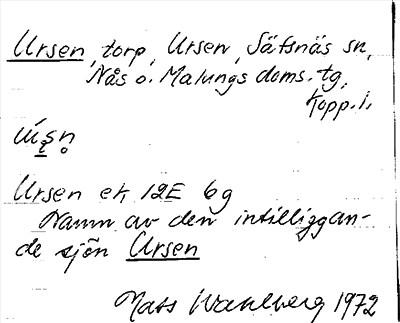 Ursen, torp, Ursen, Säfsnäs sn,
Nås o. Malungs doms. tg,
Kopp. l.
Ursen ek 12E 6g
Namn av den intilliggan-
de sjön Ursen
Mats Wahlberg 1972